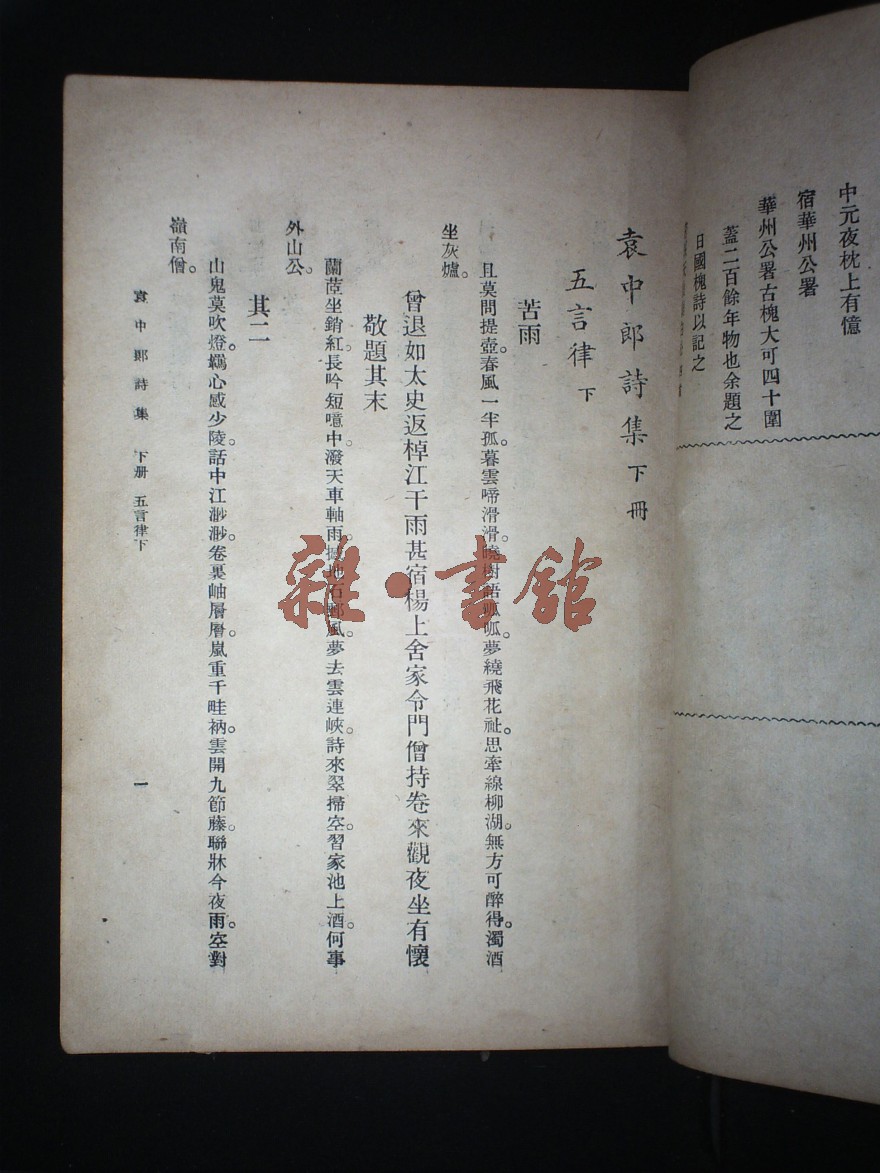 中元夜枕上有憶
宿華州公署
華州公署古槐大可四十圍
蓋二百餘年物也余題之
曰國槐詩以記之
袁中郎詩集 下冊
五言律 下
苦雨
且莫問提壺。春風一半孤。暮雲啼滑滑。曉樹語呱呱。夢繞飛花祉。思牽線柳湖。無方可醉得。濁酒
坐灰爐。
曾退如太史返棹江干雨甚宿楊上舍家令門僧持卷來觀夜坐有懷
敬題其末
蘭莖坐銷紅。長吟短噫中。潑天車軸雨。地石風。夢去雲連峽。詩來翠掃空。習家池上酒。何事
外山公。
其二
山鬼莫吹燈。羈心感少陵。話中江渺渺。卷裏岫層層。嵐重千畦衲。雲開九節藤。聯牀今夜雨。空對
嶺南僧。
袁中郎詩集 下册 五言律下
一
雜·書館